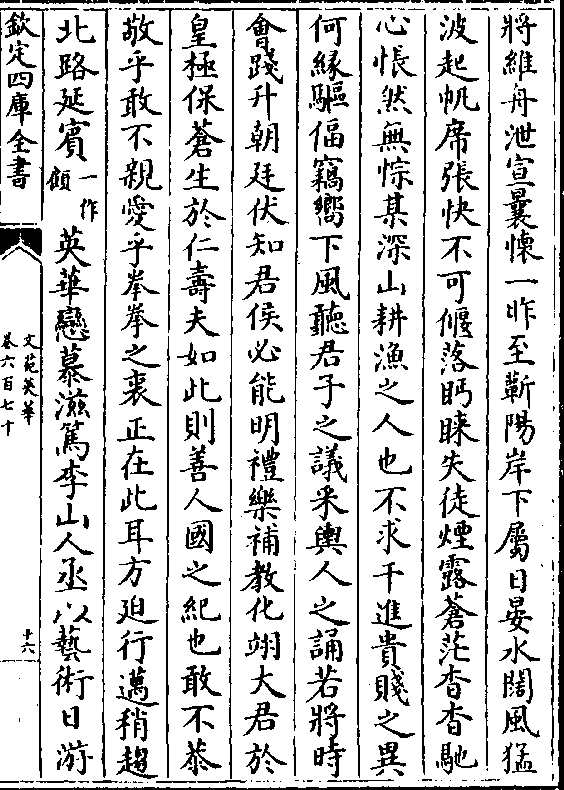 將維舟泄宣曩懷一昨至蘄陽岸下屬日晏水闊風猛
波起帆席張快不可偃落眄睞失徒煙露蒼茫杳杳馳
心悵然無悰某深山耕漁之人也不求干進貴賤之異
何緣驅偪竊嚮下風聽君子之議采輿人之誦若將時
會踐升朝廷伏知君侯必能明禮樂補教化翊大君於
皇極保蒼生於仁壽夫如此則善人國之紀也敢不恭
敬乎敢不親愛乎拳拳之衷正在此耳方迫行邁稍趨
北路延賓一作顧英華戀慕滋篤李山人丞以藝術日游
欽定四庫全書
文苑英華
卷六百七十
十六